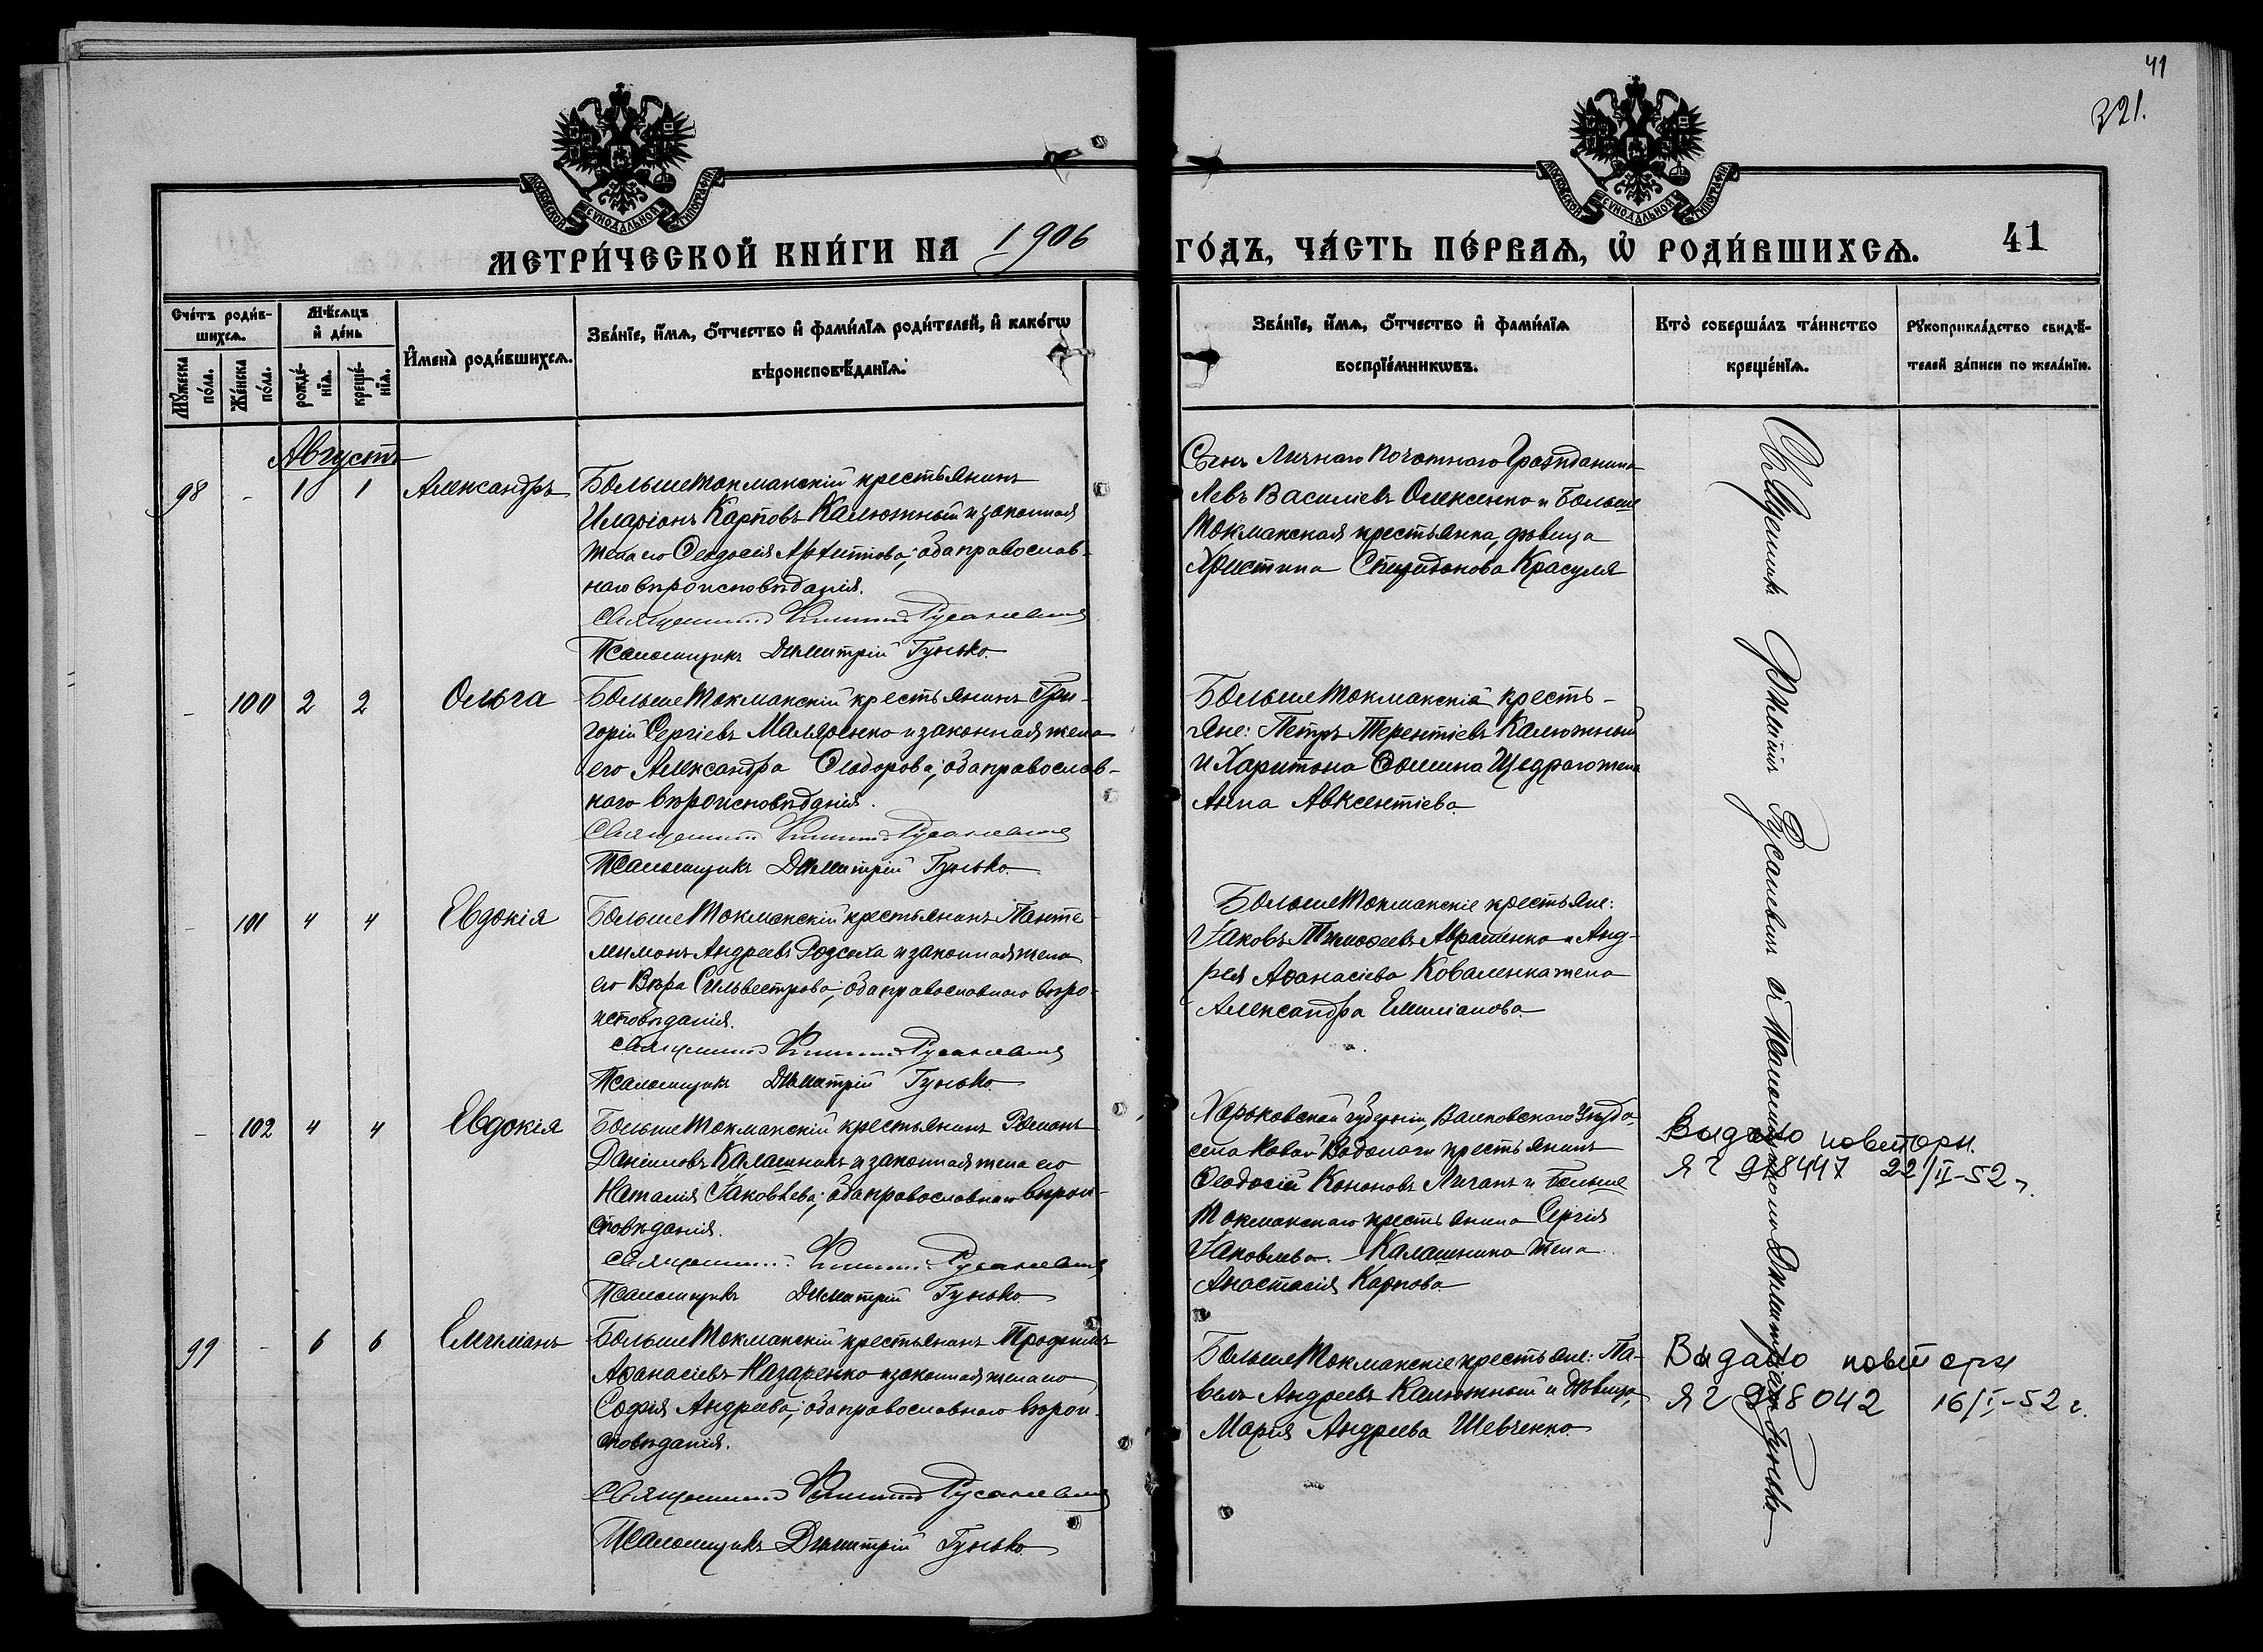 41
321.
МОСКОВСКОЙ СѴНОДАЛЬНОЙ ТИПОГРАФІИ
МОСКОВСКОЙ СѴНОДАЛЬНОЙ ТИПОГРАФІИ
МЕТРИ́ЧЕСКОЙ КНИ́ГИ НА 1906
ГО́ДЪ, ЧА́СТЬ ПЕ́РВАѦ, Ѽ РОДИ́ВШИХСѦ. 41
Сче́тъ роди́в-
шихсѧ.
Мꙋ́жеска по́ла.
Же́нска по́ла.
Мѣ́сѧцъ
и҆ де́нь
рожде́-
нїѧ.
креще́-
нїѧ.
И҆мена̀ роди́вшихсѧ.
Зва́нїе, и҆́мѧ, ѻ҆́тчество и҆ фами́лїѧ роди́телей, и҆ како́гѡ
вѣроисповѣ́данїѧ.
Зва́нїе, и҆́мѧ, ѻ҆́тчество и҆ фами́лїѧ
воспрїе́мникѡвъ.
Кто̀ соверша́лъ та́инство
креще́нїѧ.
Рꙋкоприкла́дство свидѣ́-
телей за́писи по жела́нїю.
Августъ
98 - 1 1 Александръ
БольшеТокмакскій крестьянинъ
Иларіонъ Карповъ Калюжный и законная
жена его Ѳеодосія Архипова; оба православ-
наго вѣроисповѣданія.
Священникъ Филиппъ Русаневичъ
Псаломщикъ Димитрій Гунько.
Сынъ Личнаго Почотнаго Гражданина
Левъ Василіевъ Олексенко и Больше
Токмакская крестьянка, дѣвица
Христина Спиридонова Красуля
- 100 2 2 Ольга
БольшеТокмакскій крестьянинъ Гри-
горій Сергіевъ Маляренко и законная жена
его Александра Ѳеодорова; оба православ-
наго вѣроисповѣданія.
Священникъ Филиппъ Русаневичъ
Псаломщикъ Димитрій Гунько.
БольшеТокмакскіе кресть-
яне: Петръ Терентіевъ Калюжный
и Харитона Ѳомина Щедраго жена
Анна Авксентіева.
- 101 4 4 Евдокія
БольшеТокмакскій крестьянинъ Панте-
леимонъ Андреевъ и законная жена
его Вѣра Сильвестрова; оба православнаго вѣро-
исповѣданія.
Священникъ Филиппъ Русаневичъ
Псаломщикъ Димитрій Гунько.
БольшеТокмакскіе крестьяне:
Іаковъ Тимоѳеевъ Авраменко и Анд-
рея Аѳанасіева Коваленка жена
Александра Емиліанова.
- 102 4 4 Евдокія
БольшеТокмакскій крестьянинъ Романъ
Даніиловъ Калашникъ и законная жена его
Наталія Іаковлева; оба православнаго вѣрои-
сповѣданія.
Священникъ Филиппъ Русаневичъ
Псаломщикъ Димитрій Гунько.
Харьковской губерніи, Валковскаго Уѣзда,
села Новой Водолаги крестьянинъ
Ѳеодосій Кононовъ Личанъ и Больше
Токмакскаго крестьянина Сергія
Іаковлева Калашника жена
Анастасія Карпова.
Выдано повторн.
ЯГ 918447 22/II-52 г.
99 - 6 6 Емиліанъ
БольшеТокмакскій крестьянинъ Трофимъ
Аѳанасіевъ Назаренко и законная жена его
Софія Андреева; оба православнаго вѣрои-
сповѣданія.
Священникъ Филиппъ Русаневичъ
Псаломщикъ Димитрій Гунько.
БольшеТокмакскіе крестьяне: Па-
велъ Андреевъ Калюжный и дѣвица,
Марія Андреева Шевченко.
Выдано повторн
ЯГ 918042 16/I-52 г.
Священникъ Филиппъ Русаневичъ съ Псаломщикомъ Димитріемъ Гунько